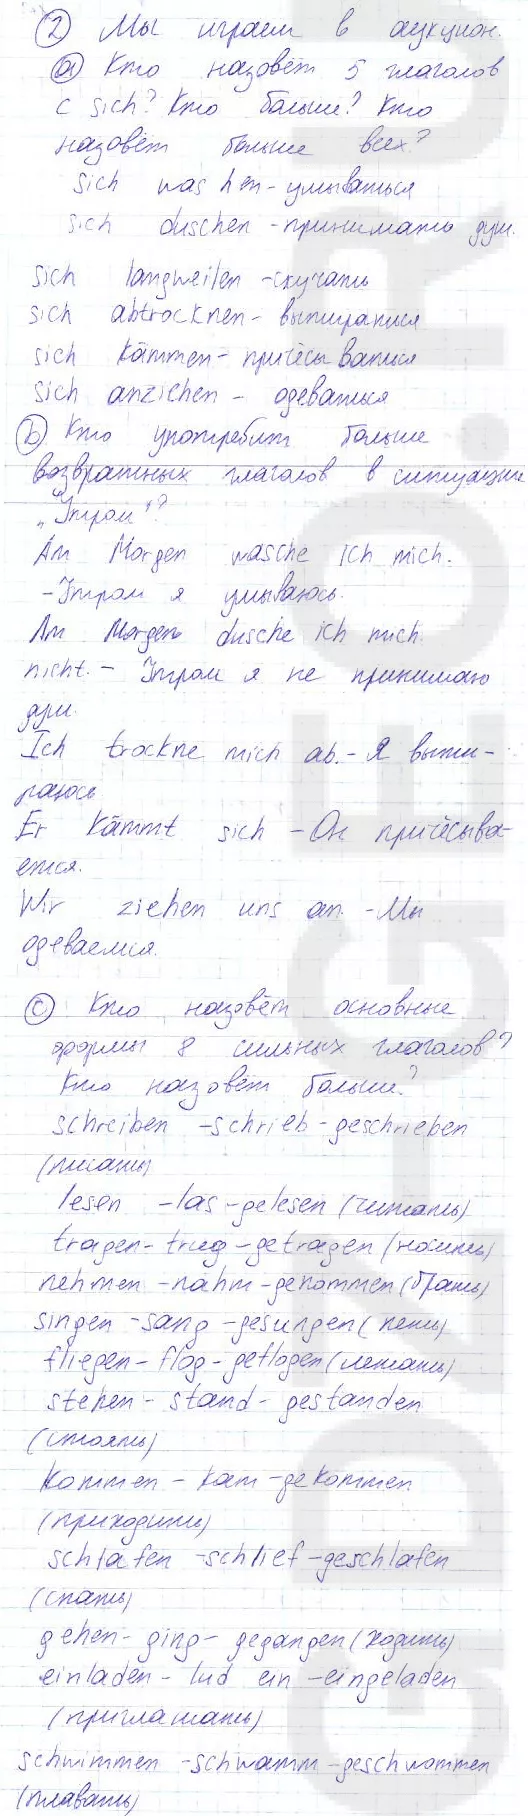 ② Мы играем в аукцион.
ⓐ Кто назовёт 5 глаголов
с sich? Кто больше? Кто
назовёт больше всех?
sich waschen - умываться
sich duschen - принимать душ.
sich langweilen - скучать
sich abtrocknen - вытираться
sich kämmen - причёсываться
sich anziehen - одеваться
ⓑ Кто употребит больше
возвратных глаголов в ситуации
„Утром"?
Am Morgen wasche ich mich.
- Утром я умываюсь.
Am Morgen dusche ich mich
nicht. - Утром я не принимаю
душ.
Ich trockne mich ab. - Я выти-
раюсь
Er kämmt sich - Он причёсыва-
ется.
Wir ziehen uns an. - Мы
одеваемся.
ⓒ Кто назовёт основные
формы 8 сильных глаголов?
Кто назовёт больше?
schreiben - schrieb - geschrieben
(писать)
lesen - las - gelesen (читать)
tragen - trug - getragen (носить)
nehmen - nahm - genommen (брать)
singen - sang - gesungen (петь)
fliegen - flog - geflogen (летать)
stehen - stand - gestanden
(стоять)
kommen - kam - gekommen
(приходить)
schlafen - schlief - geschlafen
(спать)
gehen - ging - gegangen (ходить)
einladen - lud ein - eingeladen
(приглашать)
schwimmen - schwamm - geschwommen
(плавать)
GDZ-GEO.RU